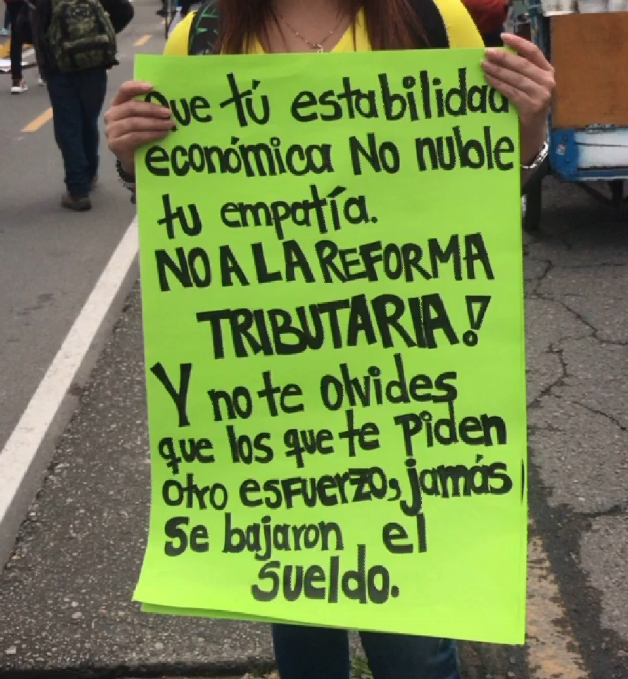 Que tú estabilidad
económica No nuble
tu empatía.
NO A LA REFORMA
TRIBUTARIA!
Y no te olvides
que los que te Piden
otro esfuerzo, jamás
se bajaron el
sueldo.